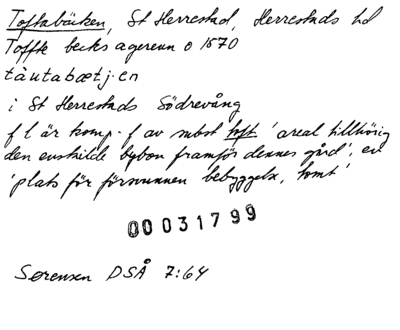 Toftabäcken, St Herrestad, Herrestads hd
Toffte becks agerenn o 1570
tàutabætj.en
i St Herrestads Södrevång
f l är komp. f av subst toft 'areal tillhörig
den enskilde bybon framför dennes gård', ev
'plats för försvunnen bebyggelse, tomt'
00031799
Sørensen DSÅ 7:64